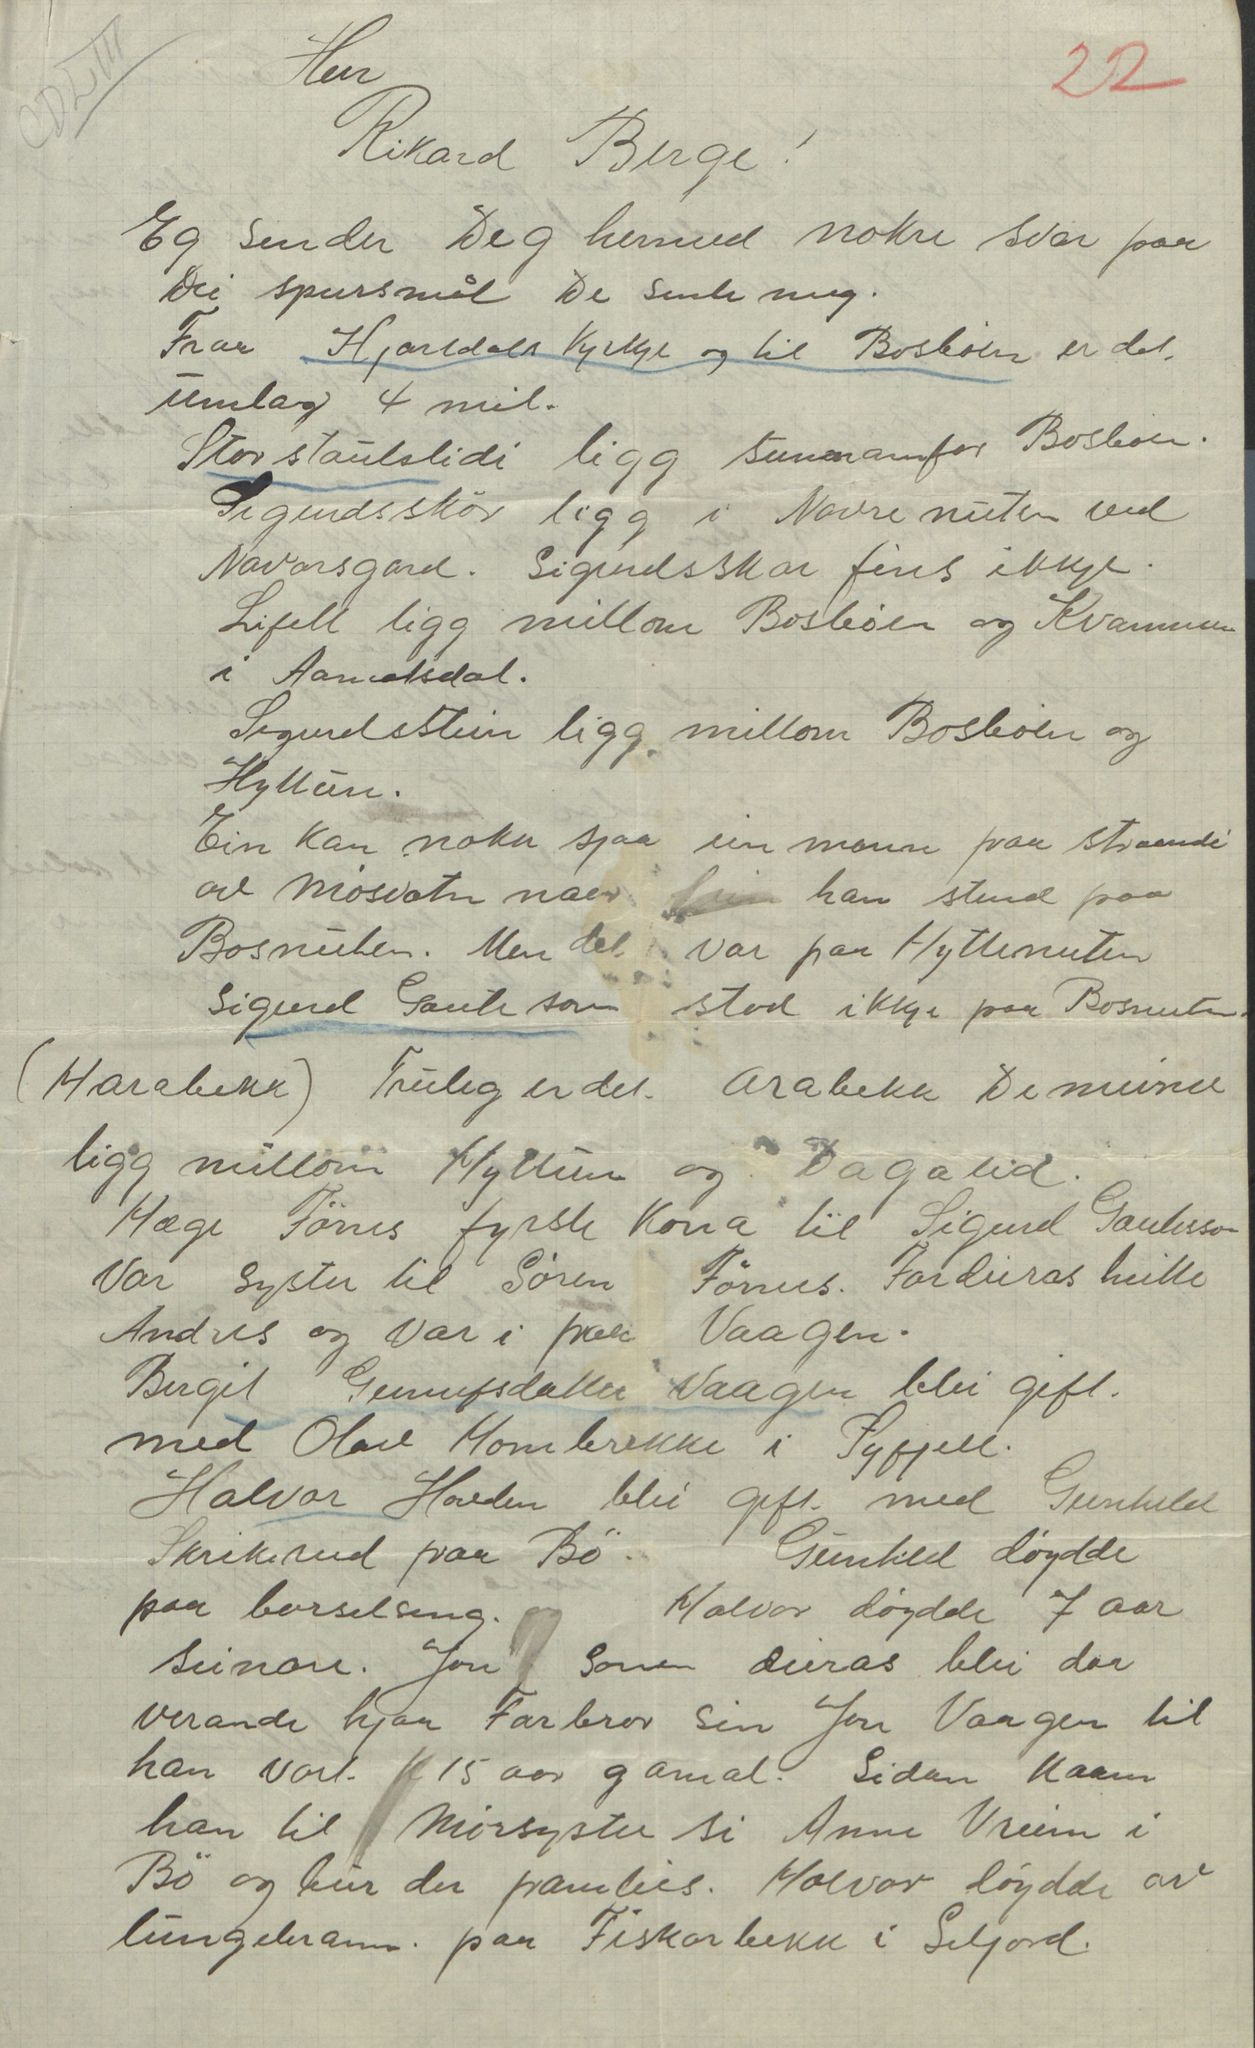 CDLIII
22
Herr
Rikard Berge!
Eg sender Deg hermed nokre svar paa
Dei spursmål De sente meg.
Fraa Hjartdals Kyrkje og til Bosböen er det
umlag 4 mil.
Storstaulslidi ligg sunnanfor Bosböen.
Sigurdsskör ligg i Navrenuten ved
Navarsgard. Sigurdsskar fins ikkje.
Lifell ligg millom Bosböen og Kvammen
i Aamotsdal.
Sigurdsstein ligg millom Bosböen og
Hyttun.
Ein kan noku sjaa ein mann paa straandi
av Mösvatn naar han stend paa
Bosnuten. Men det var paa Hyttenuten
Sigurd Gauteson stod ikkje paa Bosnuten.
(Harabekk) Truleg er det Arabekk De meiner
ligg millom Hyttun og Dagalid.
Hæge Fönes fyrste Kona til Sigurd Gautesson
var syster til Sören Fönnes. Far deiras heitte
Andres og var i fraa Vaagen.
Bergit Gunnufsdatter Vaagen blei gift
med Olav Hombrekke i Lyfjell.
Halvor Hovden blei gift med Gunhild
Skrikerud paa Bö. Gunhild döydde
paa barselseng. Halvor döydde 7 aar
seinare. Jon sonen deiras blei daa
verande hjaa Farbror sin Jon Vaagen til
han vart 15 aar gamal. Sidan kaam
han til Morsyster si Anne Vreim i
Bö og bur der framleis. Halvor döydde av
lungebrann. paa Fiskarbekk i Seljord.